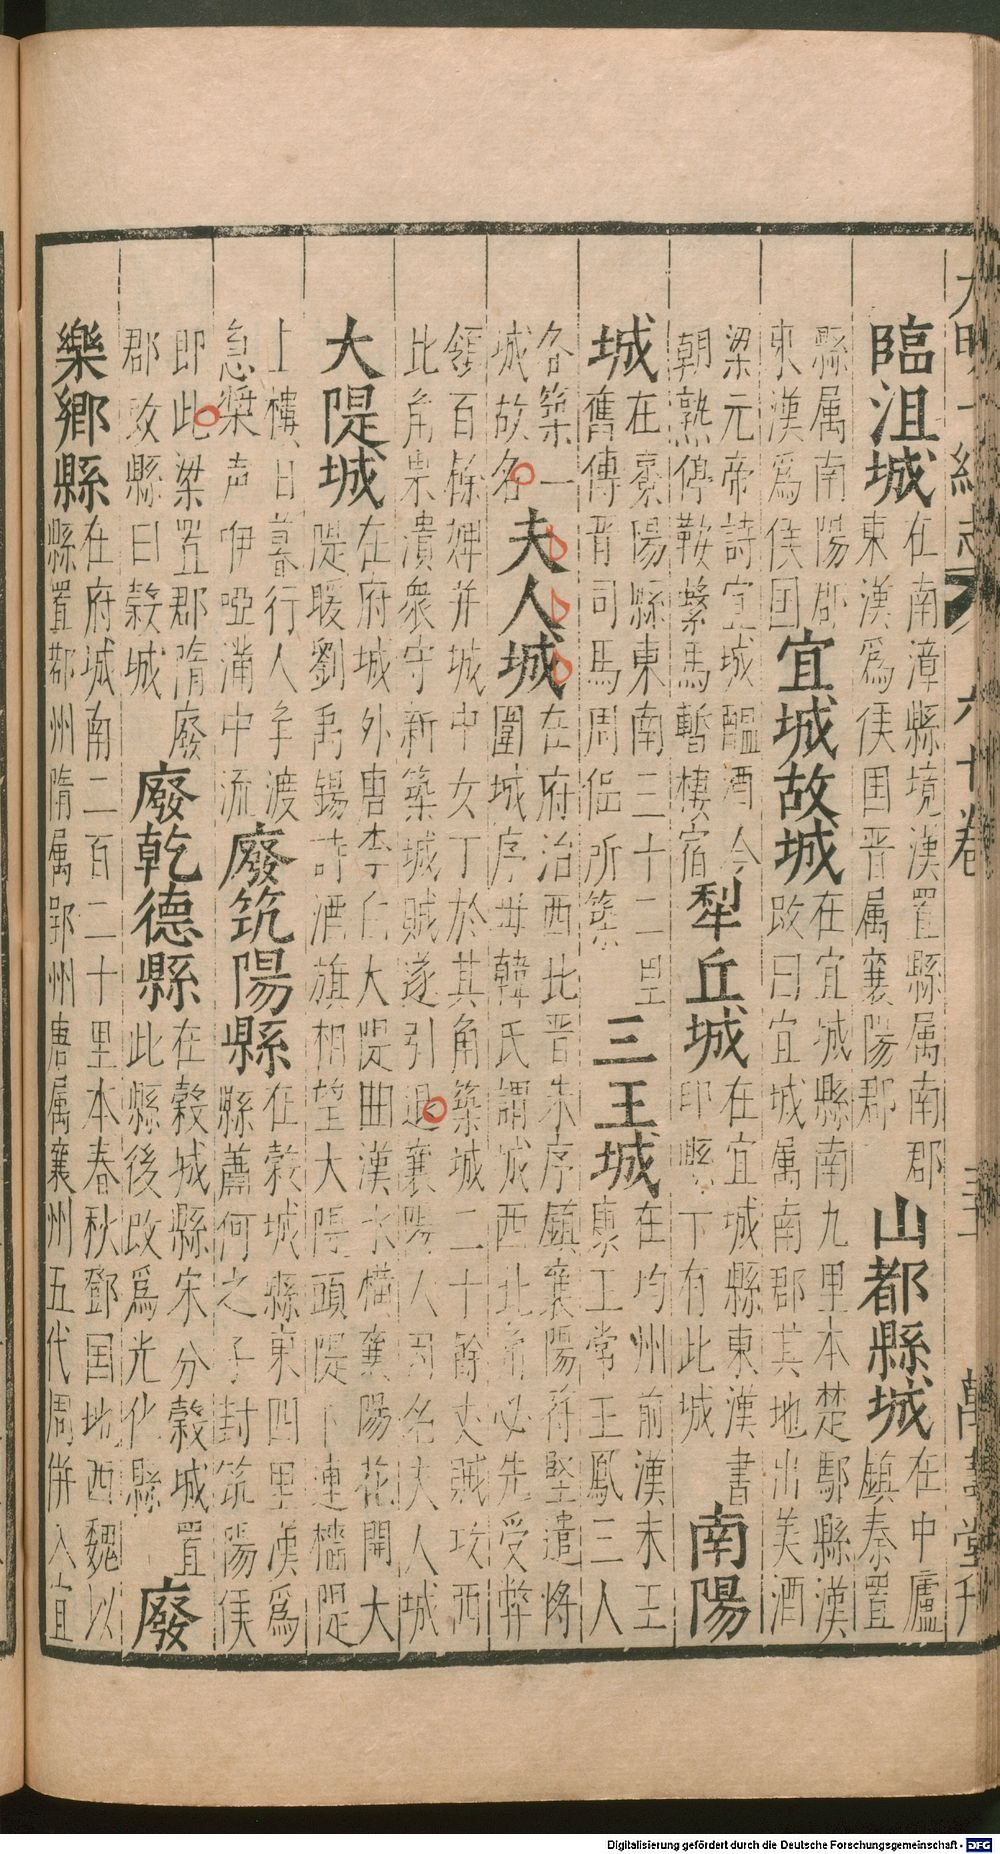 大明一統志 六十卷 萬壽堂刊
臨沮城 在南漳縣境漢置縣属南郡
東漢爲侯国晋属襄陽郡 山都縣城 在中廬
鎮秦置
縣属南陽郡
東漢爲侯国 宜城故城 在宜城縣南九里本楚鄢縣漢
改曰宜城属南郡其地出美酒
梁元帝詩宜城醞酒今
朝熟停鞍繫馬暫棲宿 犁丘城 在宜城縣東漢書
即縣下有此城 南陽
城 在棗陽縣東南三十二里
舊傳晋司馬周侣所築 三王城 在均州前漢末王
康王常王鳳三人
各築一
城故名 夫人城 在府治西北晋朱序鎮襄陽苻堅遣將
圍城序母韓氏謂城西北角必先受弊
領百餘婢并城中女丁於其角築城二十餘丈賊攻西
北角果潰衆守新築城賊遂引退襄陽人因名夫人城
大隄城 在府城外唐李白大隄曲漢水横襄陽花開大
隄暖劉禹錫詩酒旗相望大隄頭隄下連檣隄
上樓日暮行人争渡
急槳声咿啞滿中流 廢筑陽縣 在榖城縣東四里漢爲
縣蕭何之子封筑陽侯
即此梁置郡隋廢
郡改縣曰榖城 廢乾德縣 在榖城縣宋分榖城置
此縣後改爲光化縣 廢
樂鄉縣 在府城南二百二十里本春秋鄧国地西魏以
縣置鄀州隋属郢州唐属襄州五代周併入宜
Digitalisierung gefördert durch die Deutsche Forschungsgemeinschaft - DFG